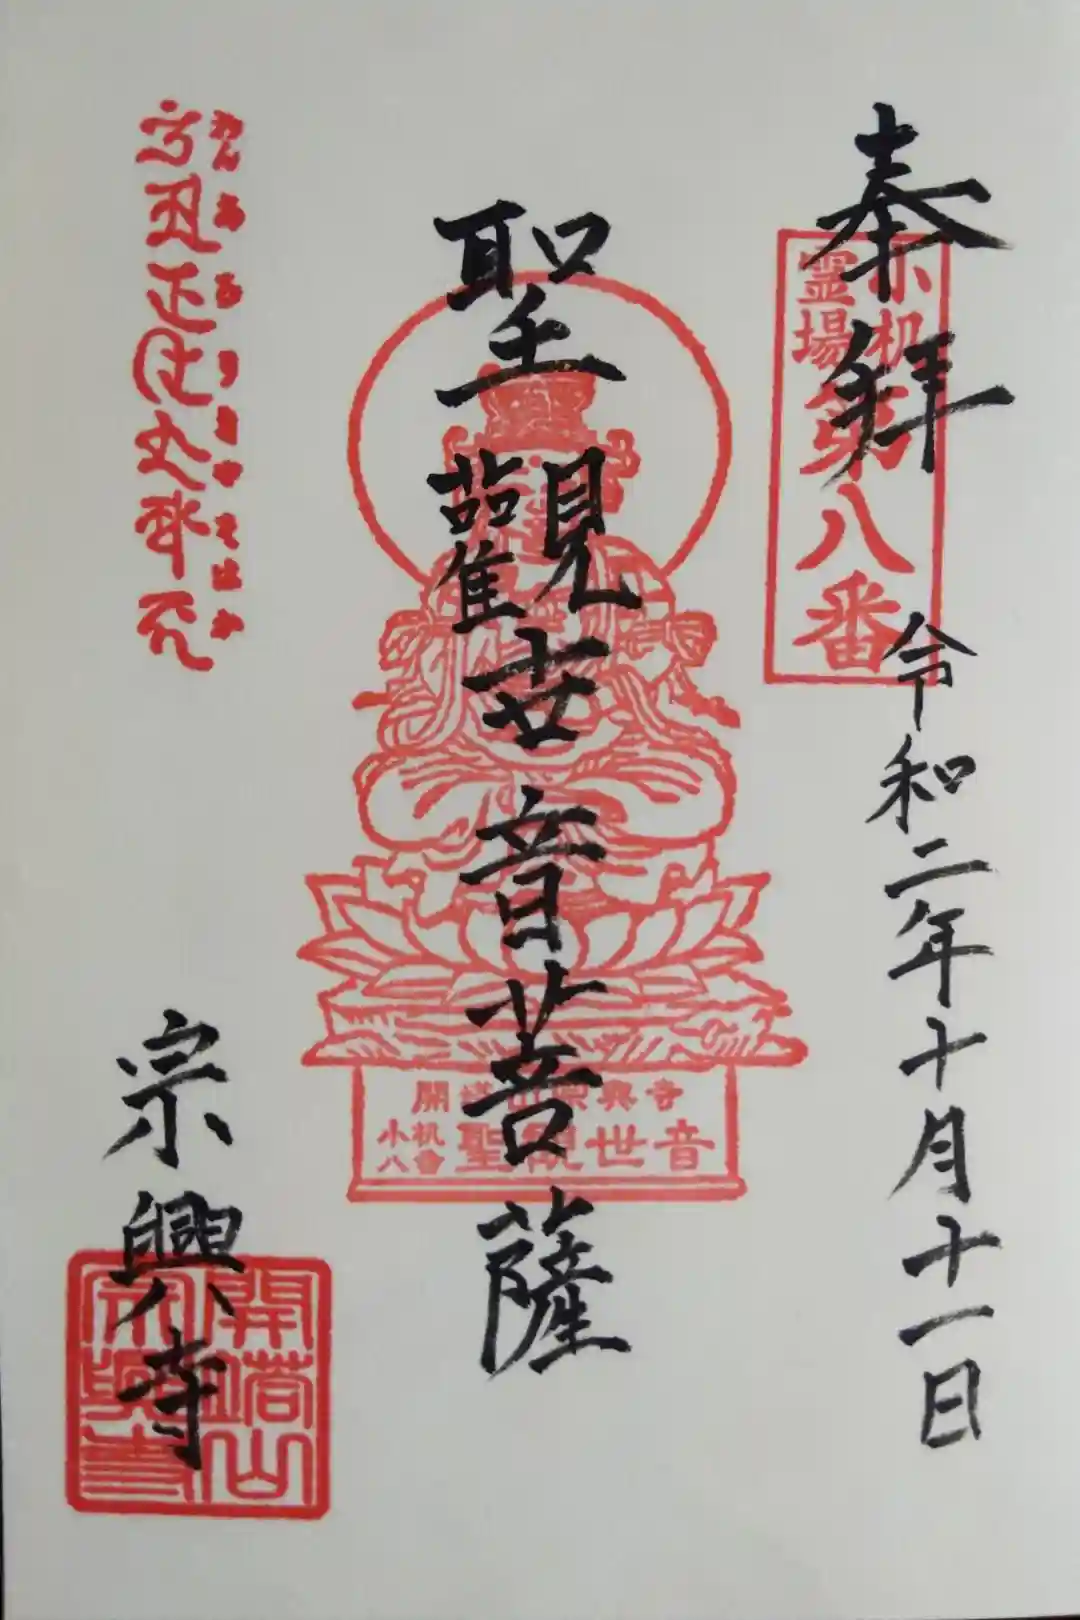 奉拜
小机
霊場
第八番
令和二年十月十一日
聖觀世音菩薩
開塔山宗興寺
小机
八番
聖觀世音
宗興寺
開塔山
宗興寺